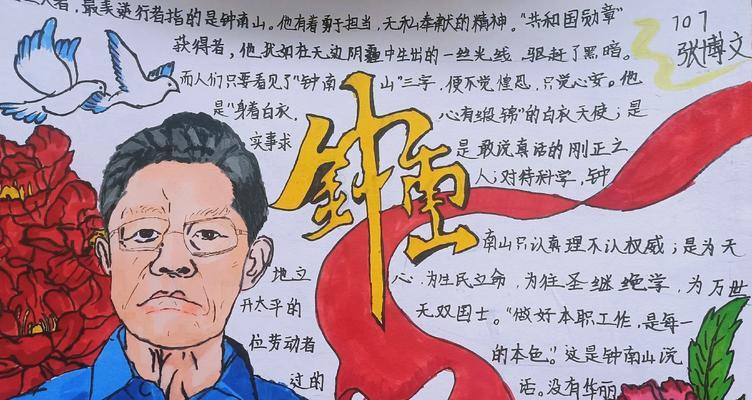 107
张博文
者，最美逆行者指的是钟南山。他有着勇于担当，无私奉献的精神。“共和国勋章”
获得者，他犹如在无边阴霾中生出的一丝光线，驱赶了黑暗。
而人们只要看见了“钟南山”三字，便不觉惶恐，只觉心安。他
是“身着白衣，心有缎锦”的白衣天使；是
实事求是敢说真话的刚正立
人；对待科学，钟
钟南山
南山只认真理不认权威；是为天
地立心，为生民立命，为往圣继绝学，为万世
开太平的无双国士。“做好本职工作，是每一
位劳动者的本色。”这是钟南山说
过的话。没有华丽